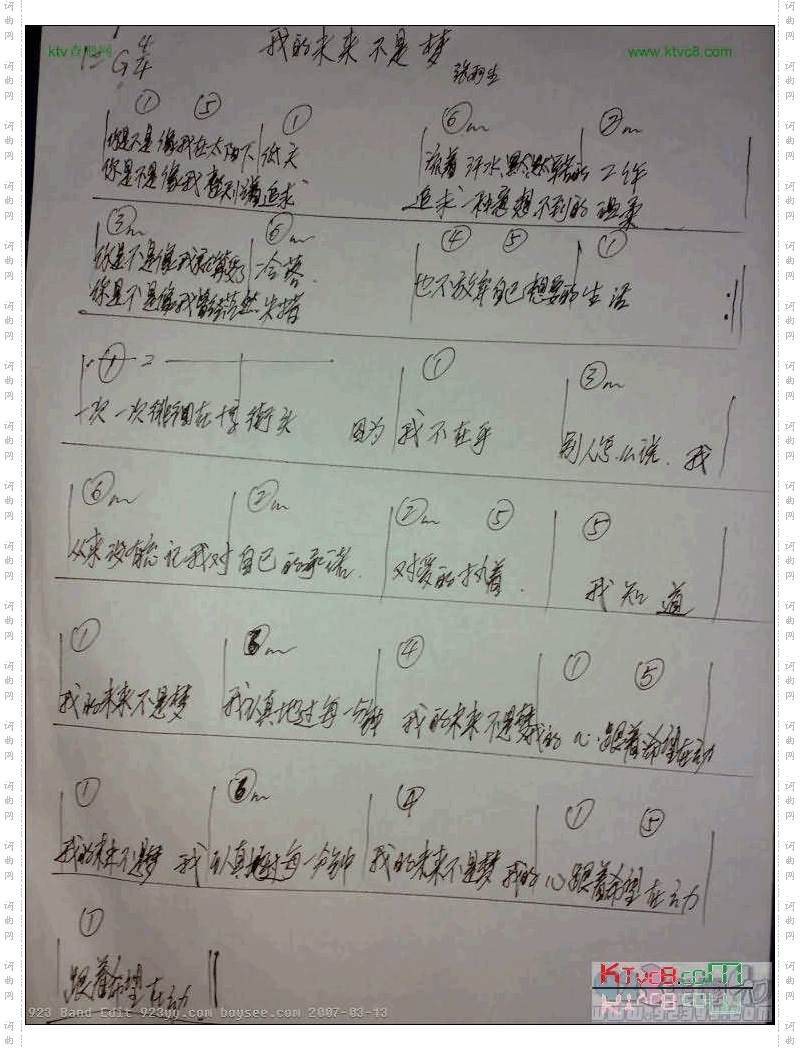 ktv
www.ktvc8.com
我的未来不是梦
1=G 4/4
张雨生
① ⑤ ① ⑥m ②m
你是不是像我在太阳下 低头 流着汗水默默辛苦的工作
你是不是像我 追求 追求一种意想不到的温柔
③m ⑥m ④ ⑤ ①
你是不是像我就算受了 冷落 也不放弃自己想要的生活
你是不是像我曾经茫然失措
① ① ③m
一次一次徘徊在十字街头 因为 我不在乎 别人怎么说 我
⑥m ②m ②m ⑤ ⑤
从来没有忘记我对自己的承诺 对爱的执着 我知道
① ⑥m ④ ① ⑤
我的未来不是梦 我认真地过每一分钟 我的未来不是梦 我的心跟着希望在动
① ⑥m ④ ① ⑤
我的未来不是梦 我认真地过每一分钟 我的未来不是梦 我的心跟着希望在动
①
跟着希望在动
KTvc8.com
923 Band Edit 923yy.com boysee.com 2007-03-13
词曲网